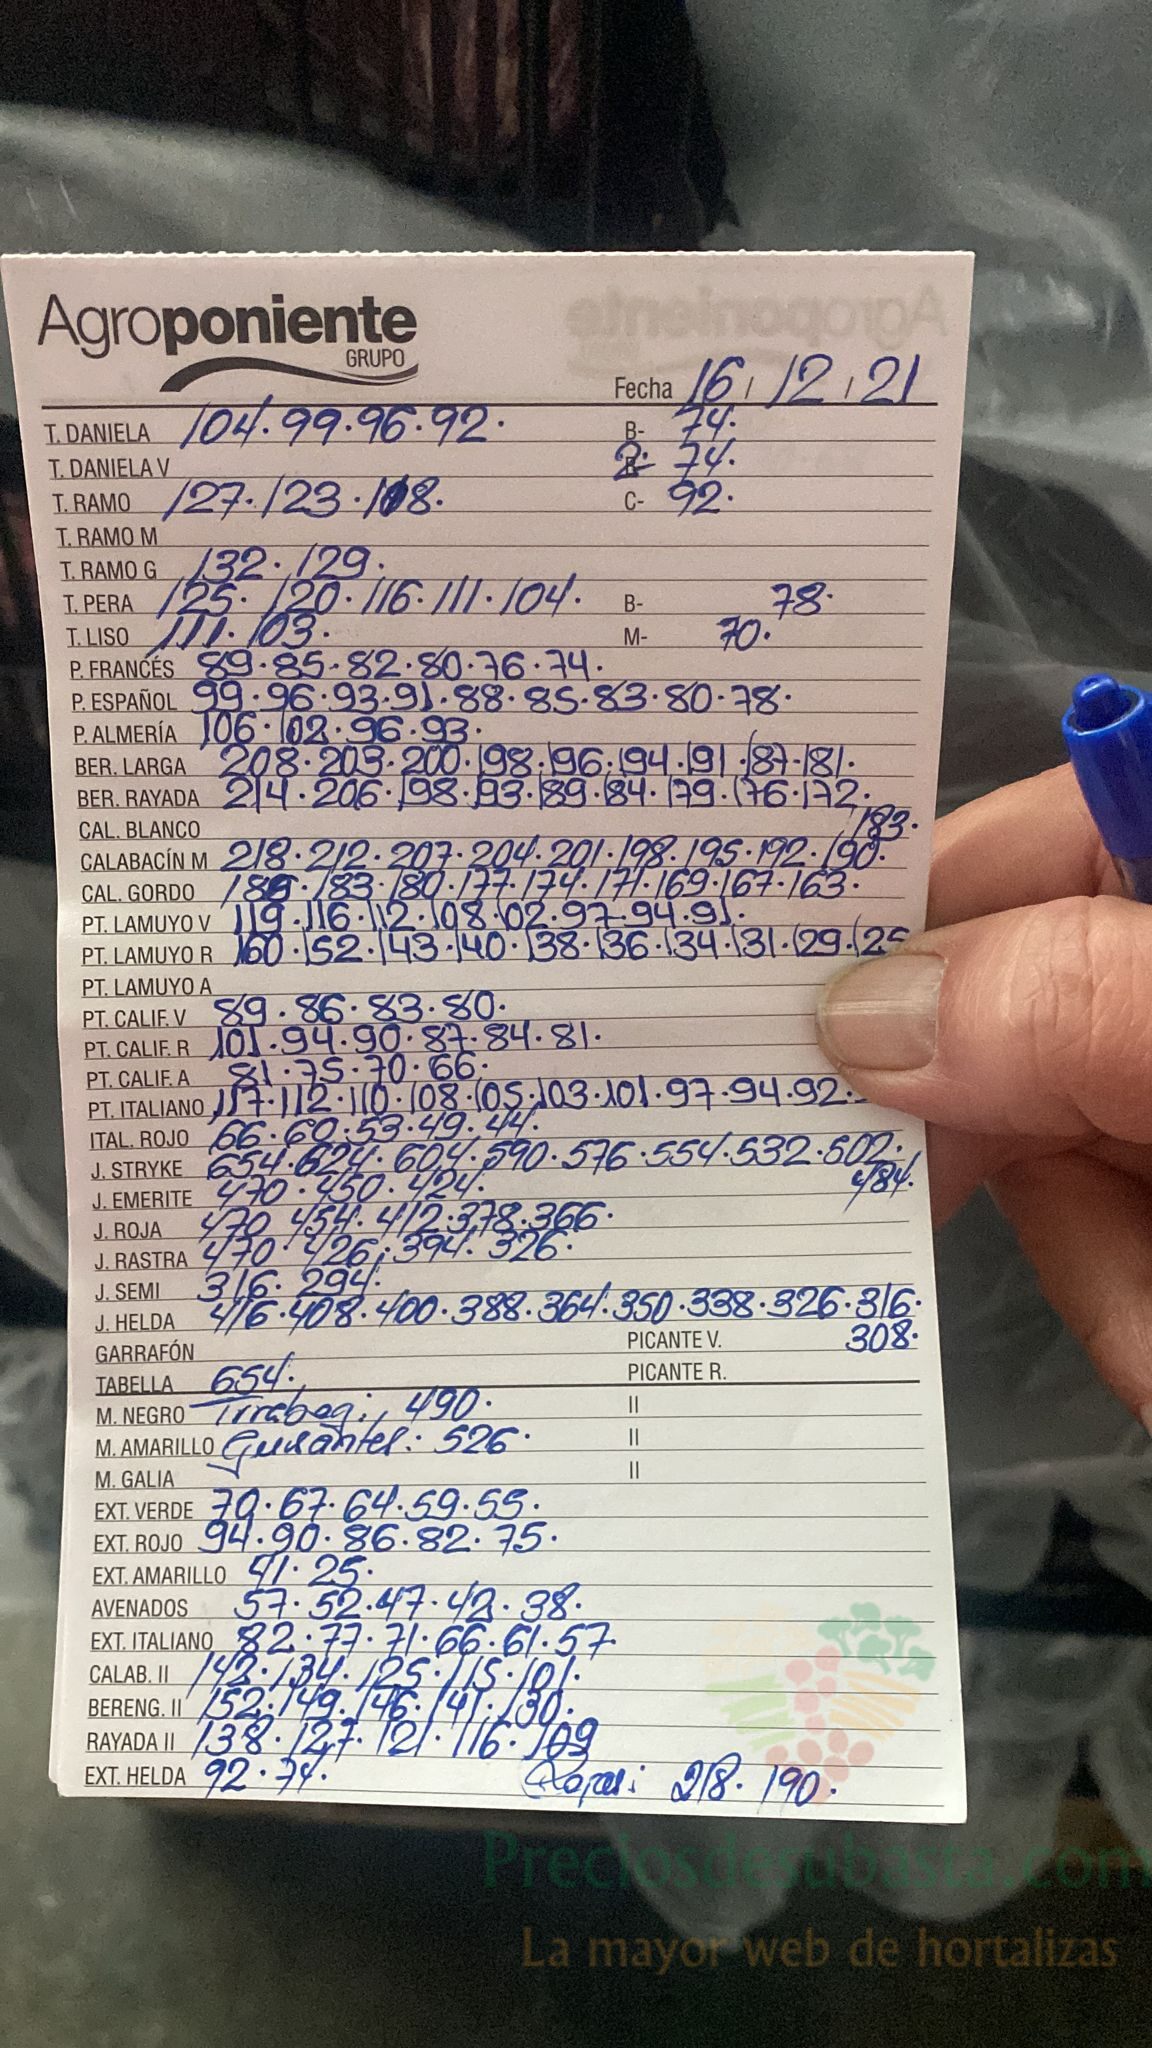 Agroponiente
GRUPO
Fecha 16 / 12 / 21
T. DANIELA 104. 99. 96. 92. B- 74.
T. DANIELA V 2- 74.
T. RAMO 127. 123. 118. C- 92.
T. RAMO M
T. RAMO G 132. 129.
T. PERA 125. 120. 116. 111. 104. B- 78.
T. LISO 111. 103. M- 70.
P. FRANCÉS 89. 85. 82. 80. 76. 74.
P. ESPAÑOL 99. 96. 93. 91. 88. 85. 83. 80. 78.
P. ALMERÍA 106. 102. 96. 93.
BER. LARGA 208. 203. 200. 198. 196. 194. 191. 187. 181.
BER. RAYADA 214. 206. 198. 193. 189. 184. 179. 176. 172.
CAL. BLANCO 183.
CALABACÍN M 218. 212. 207. 204. 201. 198. 195. 192. 190.
CAL. GORDO 186. 183. 180. 177. 174. 171. 169. 167. 163.
PT. LAMUYO V 119. 116. 112. 108. 02. 97. 94. 91.
PT. LAMUYO R 160. 152. 143. 140. 138. 136. 134. 131. 129. 125
PT. LAMUYO A
PT. CALIF. V 89. 86. 83. 80.
PT. CALIF. R 101. 94. 90. 87. 84. 81.
PT. CALIF. A 81. 75. 70. 66.
PT. ITALIANO 117. 112. 110. 108. 105. 103. 101. 97. 94. 92.
ITAL. ROJO 66. 60. 53. 49. 44.
J. STRYKE 654. 624. 604. 590. 576. 554. 532. 502.
J. EMERITE 470. 450. 424. 484.
J. ROJA 470 454. 412. 378. 366.
J. RASTRA 470. 426. 394. 326.
J. SEMI 316. 294.
J. HELDA 416. 408. 400. 388. 364. 350. 338. 326. 316.
GARRAFÓN PICANTE V. 308.
TABELLA 654. PICANTE R.
M. NEGRO Tirrabeq: 490. II
M. AMARILLO Guisantes: 526. II
M. GALIA II
EXT. VERDE 70. 67. 64. 59. 55.
EXT. ROJO 94. 90. 86. 82. 75.
EXT. AMARILLO 41. 25.
AVENADOS 57. 52. 47. 42. 38.
EXT. ITALIANO 82. 77. 71. 66. 61. 57.
CALAB. II 142. 134. 125. 115. 101.
BERENG. II 152. 149. 146. 141. 130.
RAYADA II 138. 127. 121. 116. 109
EXT. HELDA 92. 74. 218. 190.
Preciosdesubasta.com
La mayor web de hortalizas